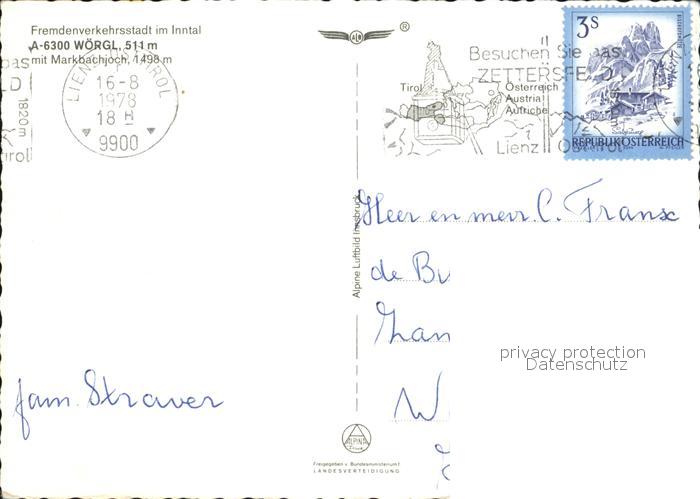 Fremdenverkehrsstadt im Inntal
A-6300 WÖRGL, 511 m
mit Markbachjoch, 1498 m
LIENZ TIROL
16-8
1978
18 H
9900
1820m
®
Besuchen Sie das
ZETTERSFELD
Tirol
Österreich
Austria
Autriche
Lienz Osttirol
3S
REPUBLIK ÖSTERREICH
Alpine Luftbild Innsbruck
Heer en mevr. C. Fransx
de Bu
Lan
W
fam. Straver
privacy protection
Datenschutz
ALPINA
Freigegeben v. Bundesministerium f.
LANDESVERTEIDIGUNG